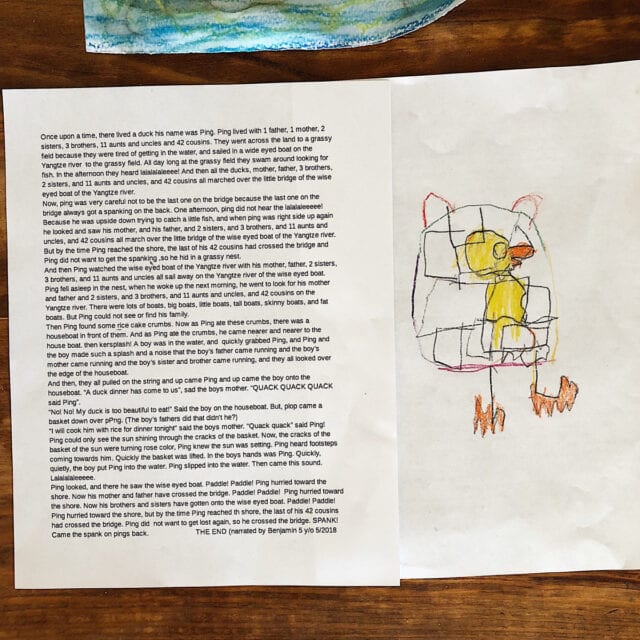 Once upon a time, there lived a duck his name was Ping. Ping lived with 1 father, 1 mother, 2
sisters, 3 brothers, 11 aunts and uncles and 42 cousins. They went across the land to a grassy
field because they were tired of getting in the water, and sailed in a wide eyed boat on the
Yangtze river to the grassy field. All day long at the grassy field they swam around looking for
fish. In the afternoon they heard lalalalaleeee! And then all the ducks, mother, father, 3 brothers,
2 sisters, and 11 aunts and uncles, and 42 cousins all marched over the little bridge of the wise
eyed boat of the Yangtze river.
Now, ping was very careful not to be the last one on the bridge because the last one on the
bridge always got a spanking on the back. One afternoon, ping did not hear the lalalaleeeee!
Because he was upside down trying to catch a little fish, and when ping was right side up again
he looked and saw his mother, and his father, and 2 sisters, and 3 brothers, and 11 aunts and
uncles, and 42 cousins all march over the little bridge of the wise eyed boat of the Yangtze river.
But by the time Ping reached the shore, the last of his 42 cousins had crossed the bridge and
Ping did not want to get the spanking ,so he hid in a grassy nest.
And then Ping watched the wise eyed boat of the Yangtze river with his mother, father, 2 sisters,
3 brothers, and 11 aunts and uncles all sail away on the Yangtze river of the wise eyed boat.
Ping fell asleep in the nest, when he woke up the next morning, he went to look for his mother
and father and 2 sisters, and 3 brothers, and 11 aunts and uncles, and 42 cousins on the
Yangtze river. There were lots of boats, big boats, little boats, tall boats, skinny boats, and fat
boats. But Ping could not see or find his family.
Then Ping found some rice cake crumbs. Now as Ping ate these crumbs, there was a
houseboat in front of them. And as Ping ate the crumbs, he came nearer and nearer to the
house boat. then kersplash! A boy was in the water, and quickly grabbed Ping, and Ping and
the boy made such a splash and a noise that the boy's father came running and the boy's
mother came running and the boy's sister and brother came running, and they all looked over
the edge of the houseboat.
And then, they all pulled on the string and up came Ping and up came the boy onto the
houseboat. "A duck dinner has come to us", sad the boys mother. "QUACK QUACK QUACK
said Ping".
"No! No! My duck is too beautiful to eat!" Said the boy on the houseboat. But, plop came a
basket down over pPng. (The boy's fathers did that didn't he?)
"I will cook him with rice for dinner tonight" said the boys mother. "Quack quack" said Ping!
Ping could only see the sun shining through the cracks of the basket. Now, the cracks of the
basket of the sun were turning rose color, Ping knew the sun was setting. Ping heard footsteps
coming towards him. Quickly the basket was lifted. In the boys hands was Ping. Quickly,
quietly, the boy put Ping into the water. Ping slipped into the water. Then came this sound.
Lalalalaleeeee.
Ping looked, and there he saw the wise eyed boat. Paddle! Paddle! Ping hurried toward the
shore. Now his mother and father have crossed the bridge. Paddle! Paddle! Ping hurried toward
the shore. Now his brothers and sisters have gotten onto the wise eyed boat. Paddle! Paddle!
Ping hurried toward the shore, but by the time Ping reached th shore, the last of his 42 cousins
had crossed the bridge. Ping did not want to get lost again, so he crossed the bridge. SPANK!
Came the spank on pings back. THE END (narrated by Benjamin 5 y/o 5/2018